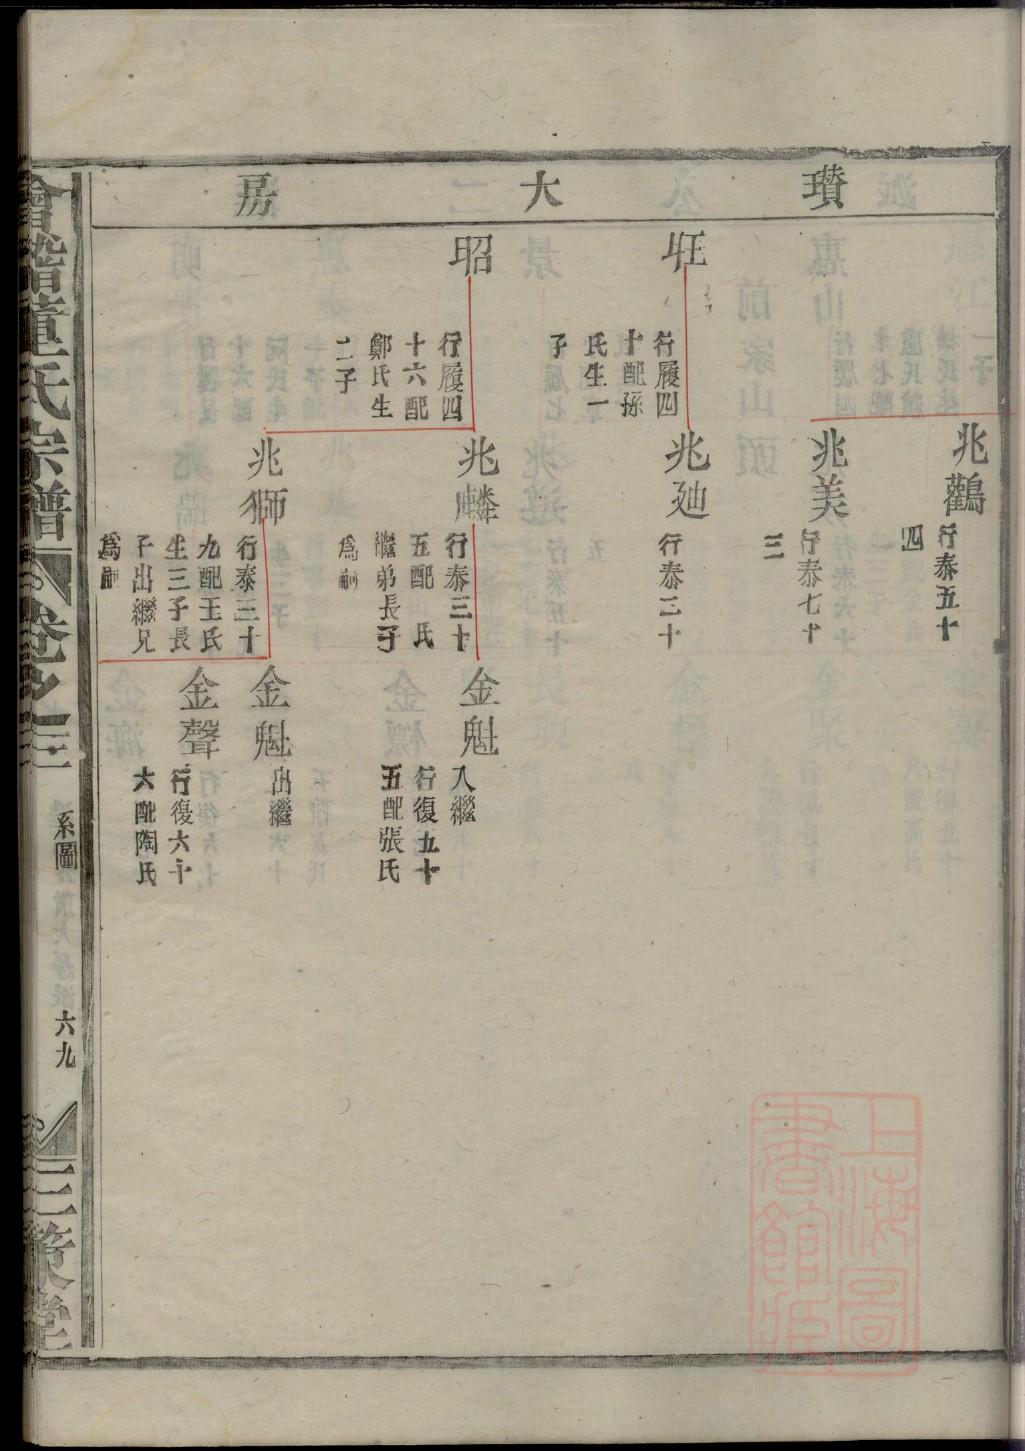 瓚大房
旺
行履四
十配孫
氏生一
子
昭
行履四
十六配
鄭氏生
二子
兆鸛
行泰五十
四
兆美
行泰七十
三
兆廸
行泰二十
兆麟
行泰三十
五配 氏
繼弟長子
為嗣
兆獅
行泰三十
九配王氏
生三子長
子出繼兄
為嗣
金魁
入繼
行復五十
五配張氏
金魁
出繼
金聲
行復六十
六配陶氏
會稽董氏宗譜
卷之三
系圖
六九
三策堂
上海圖
書館藏